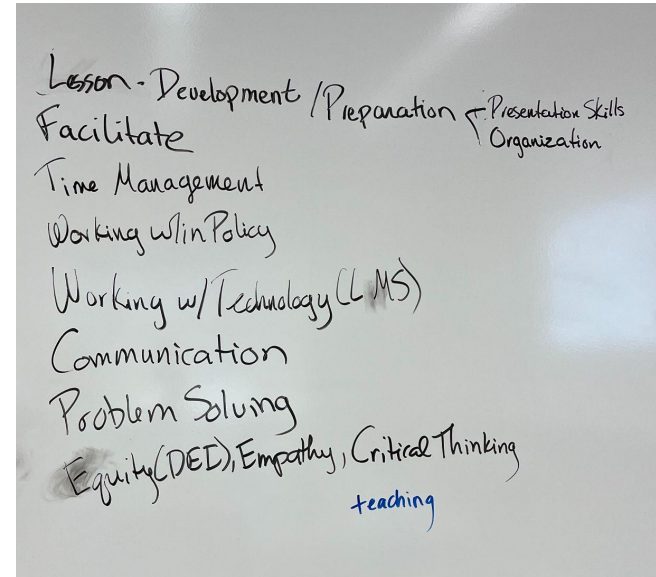 Lesson - Development / Preparation - Presentation Skills
Organization
Facilitate
Time Management
Working w/in Policy
Working w/ Technology (LMS)
Communication
Problem Solving
Equity (DEI), Empathy, Critical Thinking
teaching